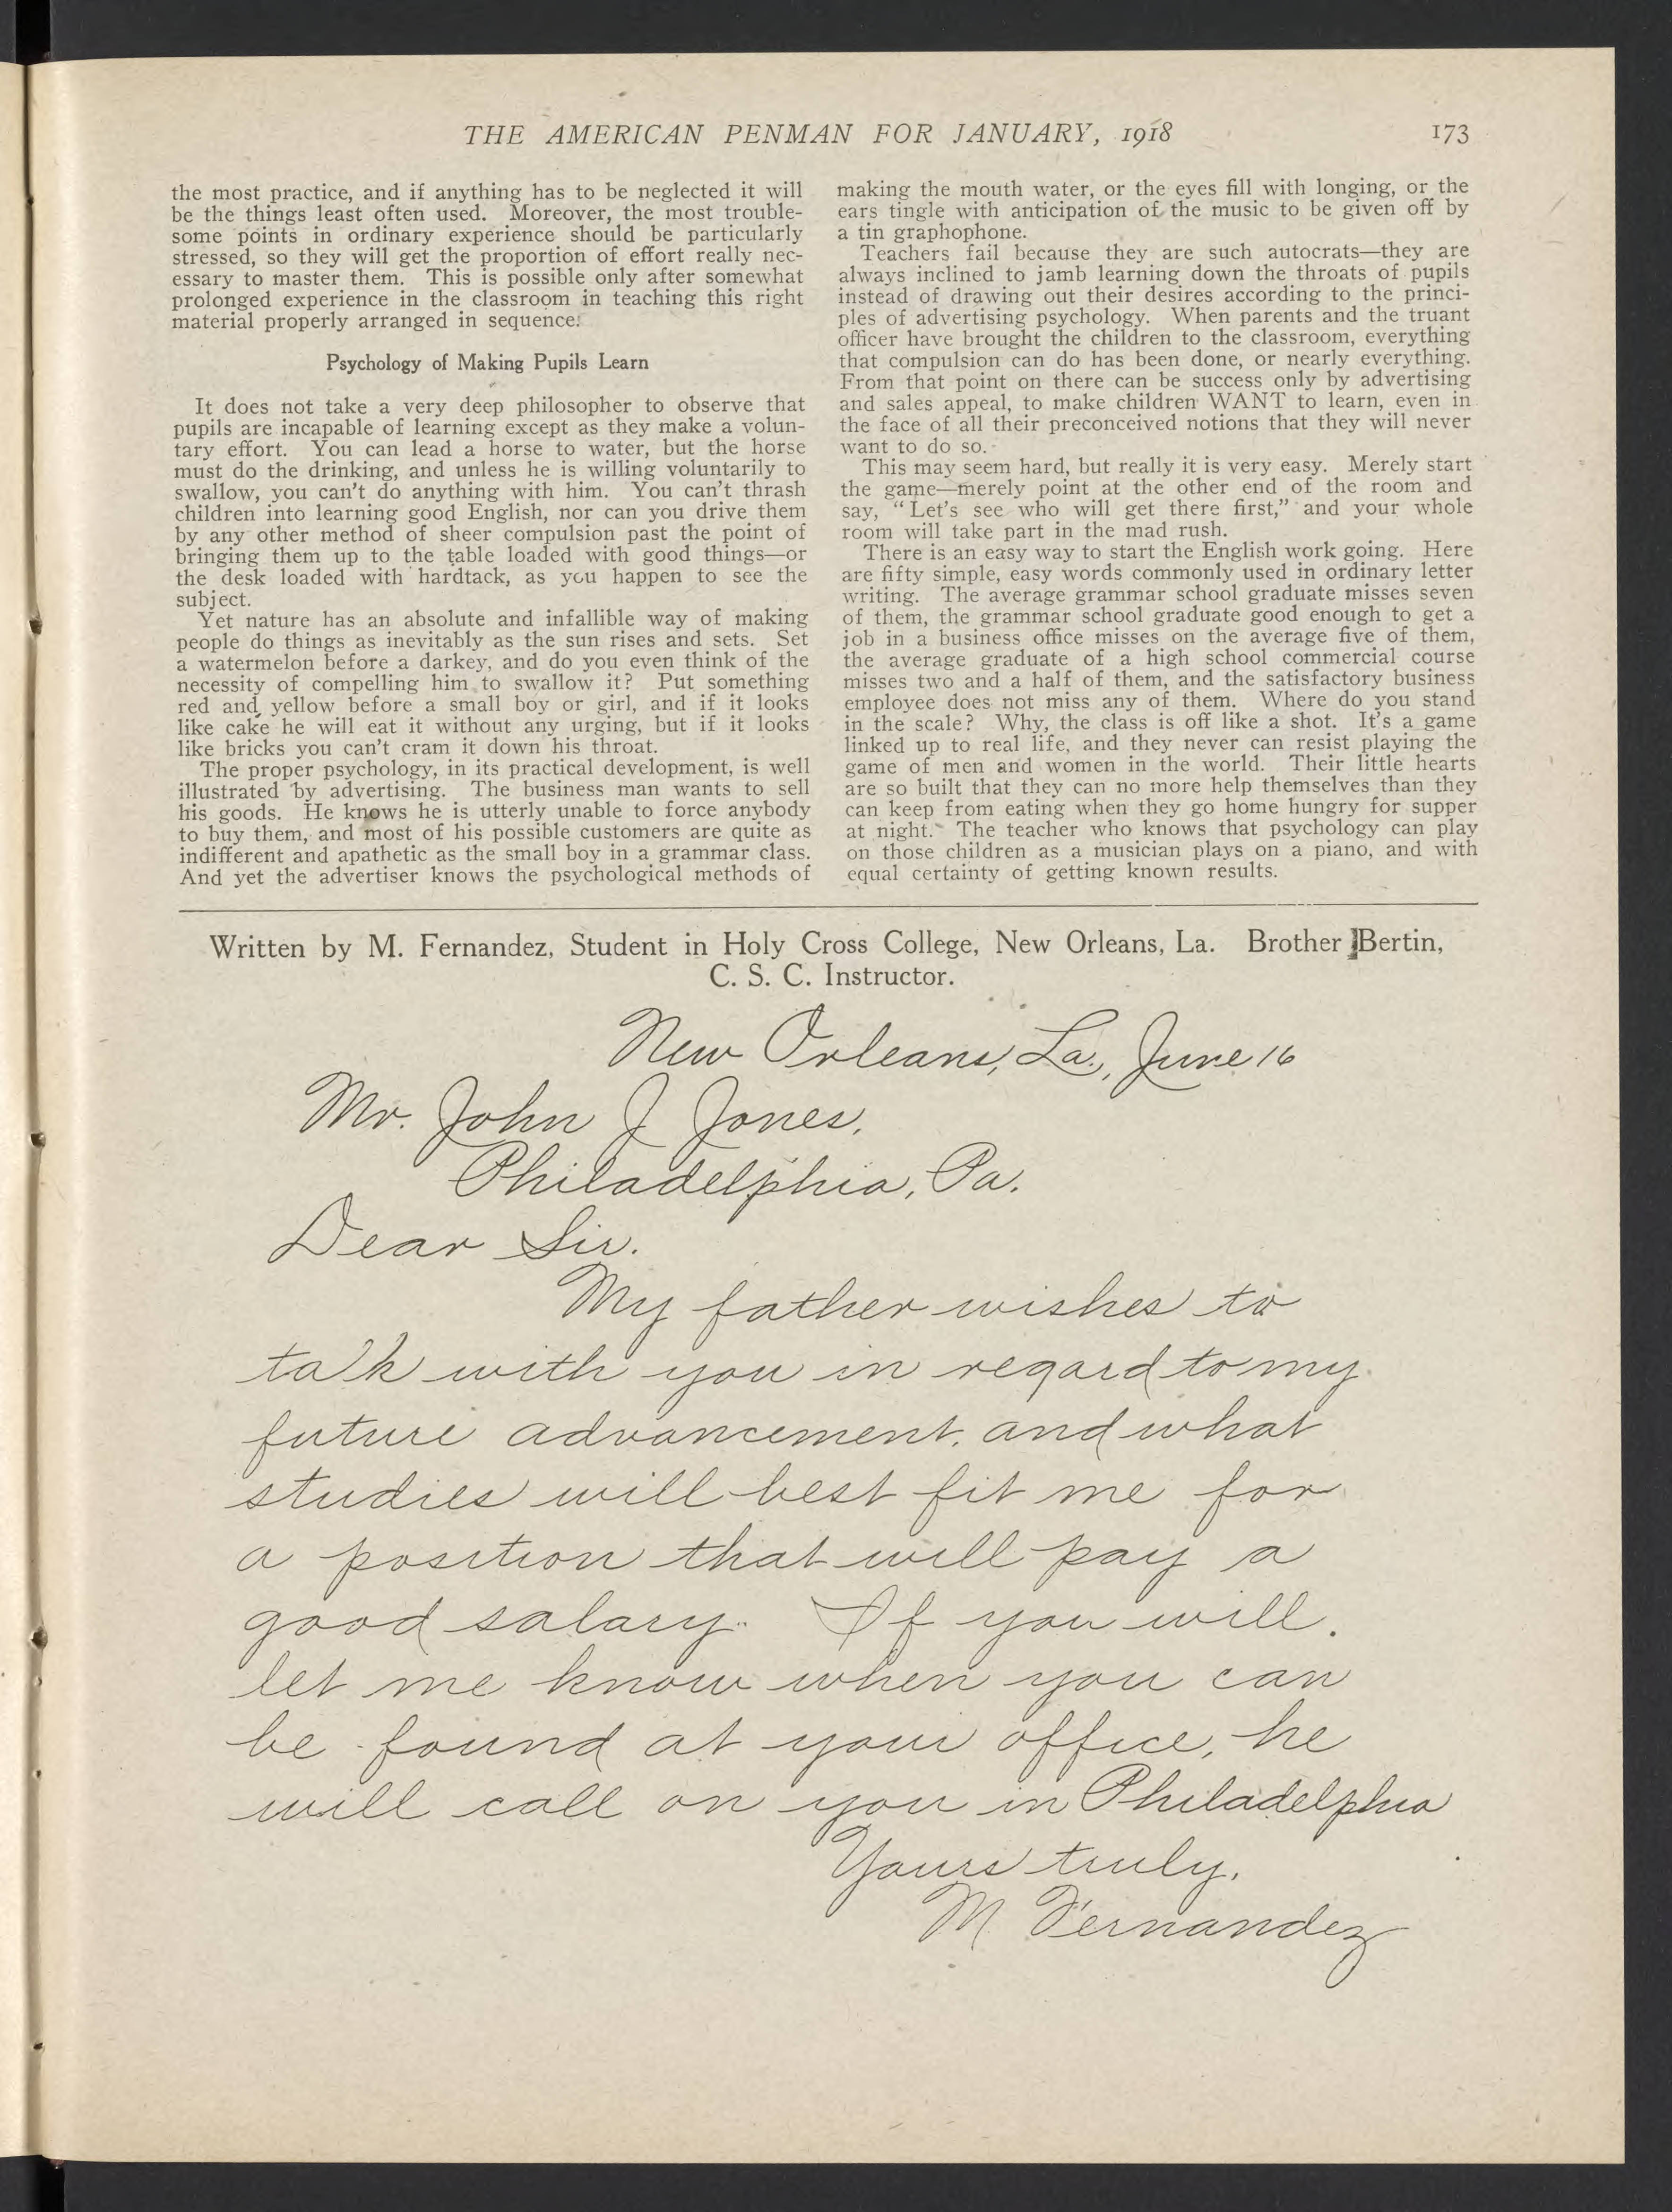 THE AMERICAN PENMAN FOR JANUARY, 1918
173
the most practice, and if anything has to be neglected it will
be the things least often used. Moreover, the most trouble-
some points in ordinary experience should be particularly
stressed, so they will get the proportion of effort really nec-
essary to master them. This is possible only after somewhat
prolonged experience in the classroom in teaching this right
material properly arranged in sequence.
Psychology of Making Pupils Learn
It does not take a very deep philosopher to observe that
pupils are incapable of learning except as they make a volun-
tary effort. You can lead a horse to water, but the horse
must do the drinking, and unless he is willing voluntarily to
swallow, you can't do anything with him. You can't thrash
children into learning good English, nor can you drive them
by any other method of sheer compulsion past the point of
bringing them up to the table loaded with good things—or
the desk loaded with hardtack, as you happen to see the
subject.
Yet nature has an absolute and infallible way of making
people do things as inevitably as the sun rises and sets. Set
a watermelon before a darkey, and do you even think of the
necessity of compelling him to swallow it? Put something
red and yellow before a small boy or girl, and if it looks
like cake he will eat it without any urging, but if it looks
like bricks you can't cram it down his throat.
The proper psychology, in its practical development, is well
illustrated by advertising. The business man wants to sell
his goods. He knows he is utterly unable to force anybody
to buy them, and most of his possible customers are quite as
indifferent and apathetic as the small boy in a grammar class.
And yet the advertiser knows the psychological methods of
making the mouth water, or the eyes fill with longing, or the
ears tingle with anticipation of the music to be given off by
a tin graphophone.
Teachers fail because they are such autocrats—they are
always inclined to jamb learning down the throats of pupils
instead of drawing out their desires according to the princi-
ples of advertising psychology. When parents and the truant
officer have brought the children to the classroom, everything
that compulsion can do has been done, or nearly everything.
From that point on there can be success only by advertising
and sales appeal, to make children WANT to learn, even in
the face of all their preconceived notions that they will never
want to do so.
This may seem hard, but really it is very easy. Merely start
the game—merely point at the other end of the room and
say, "Let's see who will get there first," and your whole
room will take part in the mad rush.
There is an easy way to start the English work going. Here
are fifty simple, easy words commonly used in ordinary letter
writing. The average grammar school graduate misses seven
of them, the grammar school graduate good enough to get a
job in a business office misses on the average five of them,
the average graduate of a high school commercial course
misses two and a half of them, and the satisfactory business
employee does not miss any of them. Where do you stand
in the scale? Why, the class is off like a shot. It's a game
linked up to real life, and they never can resist playing the
game of men and women in the world. Their little hearts
are so built that they can no more help themselves than they
can keep from eating when they go home hungry for supper
at night. The teacher who knows that psychology can play
on those children as a musician plays on a piano, and with
equal certainty of getting known results.
Written by M. Fernandez, Student in Holy Cross College, New Orleans, La. Brother Bertin,
C. S. C. Instructor.
New Orleans, La., June 16
Mr. John J Jones,
Philadelphia, Pa.
Dear Sir.
My father wishes to
talk with you in regard to my
future advancement, and what
studies will best fit me for
a position that will pay a
good salary. If you will
let me know when you can
be found at your office, he
will call on you in Philadelphia
Yours truly,
M Fernandez